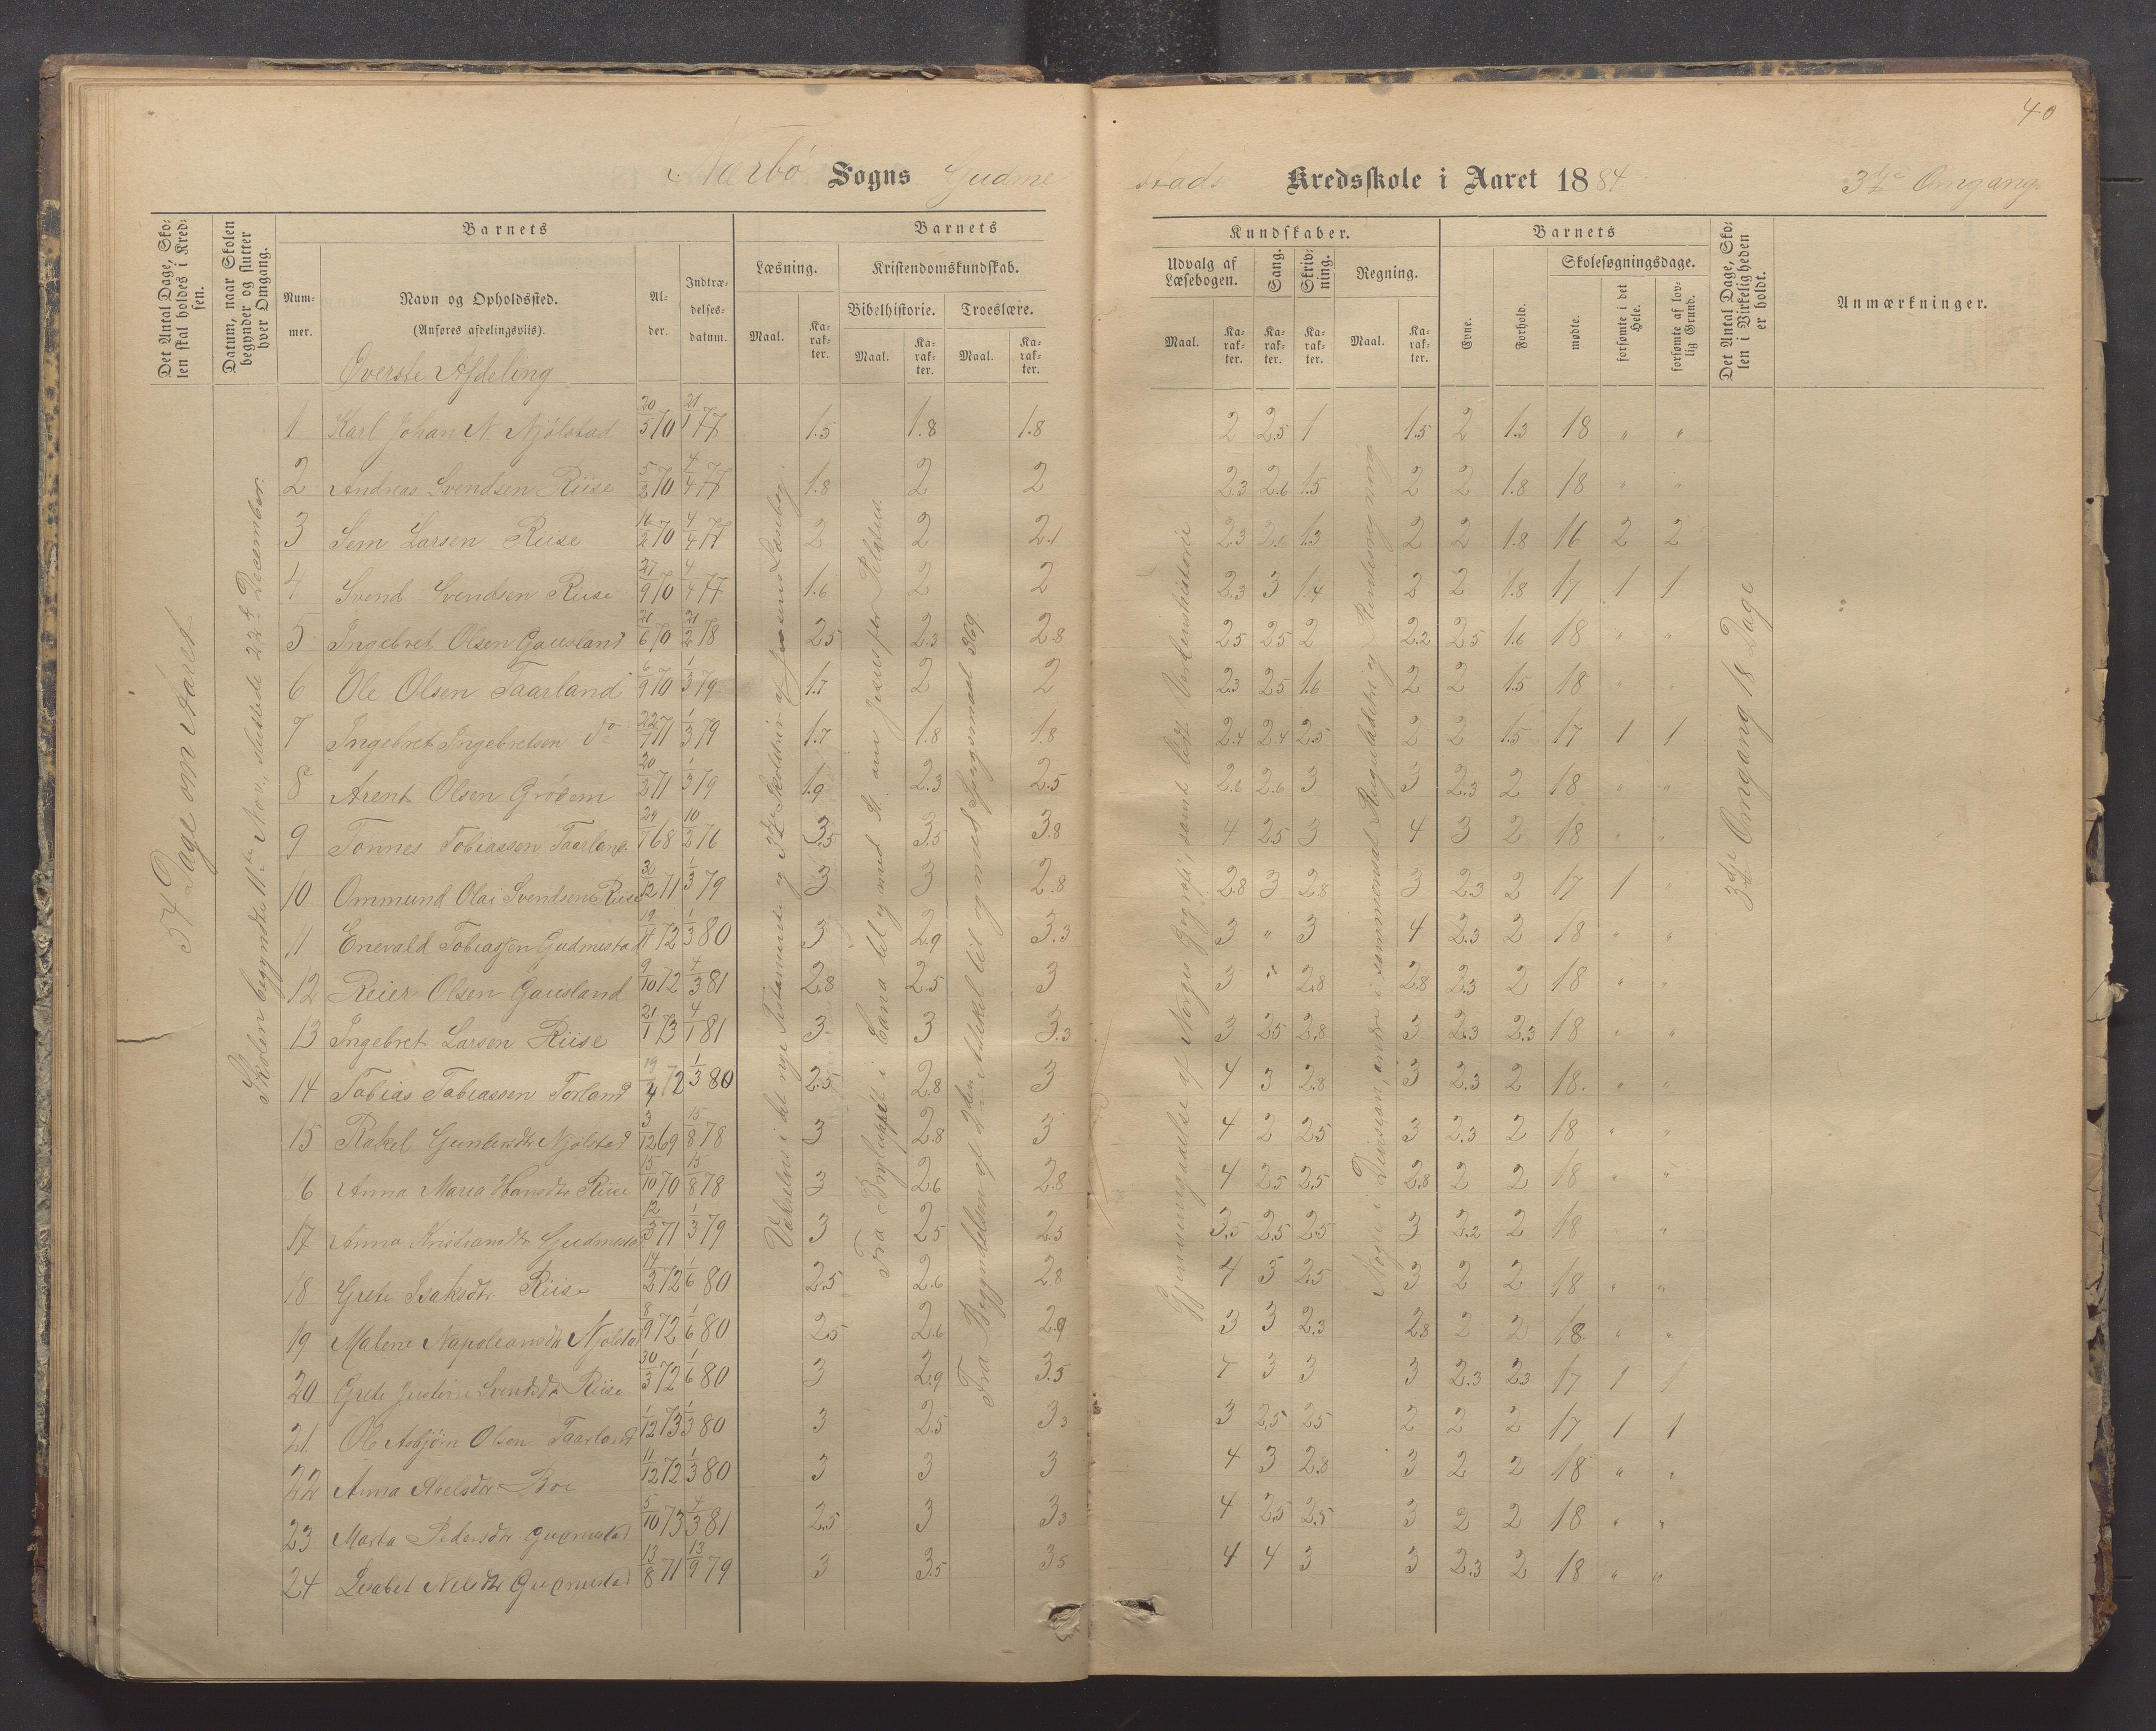 40
Nærbø Sogns Gudme stads Kredsskole i Aaret 1884 3die Omgang.
Det Antal Dage, Skolen skal holdes i Kredsen.
Datum, naar Skolen begynder og slutter hver Omgang.
Barnets
Nummer.
Navn og Opholdssted. (Anføres afdelingsviis).
Alder.
Indtrædelsesdatum.
Barnets Kundskaber.
Læsning. Maal. Karakter.
Kristendomskundskab.
Bibelhistorie. Maal. Karakter.
Troeslære. Maal. Karakter.
Udvalg af Læsebogen. Maal. Karakter.
Sang. Karakter.
Skrivning. Karakter.
Regning. Maal. Karakter.
Barnets
Evne.
Forhold.
Skolesøgningsdage.
mødte.
forsømte i det Hele.
forsømte af lovlig Grund.
Det Antal Dage, Skolen i Virkeligheden er holdt.
Anmærkninger.
Øverste Afdeling
54 Dage om Aaret
Skolen begyndte 11te Nov., sluttede 22de December.
1 Karl Johan N. Njølstad 20/5 70 21/1 77 1.5 1.8 1.8 2 2.5 1 1.5 2 1.3 18 " "
2 Andreas Svendsen Riise 5/2 70 4/4 77 1.8 2 2 2.3 2.6 1.5 2 2 1.8 18 " "
3 Sem Larsen Riise 16/2 70 4/4 77 2 2 2.1 2.3 2.6 1.3 2 2 1.8 16 2 2
4 Svend Svendsen Riise 27/9 70 4/4 77 1.6 2 2 2.3 3 1.4 2 2 1.8 17 1 1
5 Ingebret Olsen Gausland 21/6 70 21/2 78 2.5 2.3 2.8 2.5 2.5 2 2.2 2.5 1.6 18 " "
6 Ole Olsen Taarland 6/9 70 1/3 79 1.7 2 2 2.3 2.5 1.6 2 2 1.5 18 " "
7 Ingebret Ingebretsen do 22/7 71 1/3 79 1.7 1.8 1.8 2.4 2.4 2.5 2 2 1.5 17 1 1
8 Arent Olsen Grødem 20/2 71 1/3 79 1.9 2.3 2.5 2.6 2.6 3 3 2.3 2 18 " "
9 Tønnes Tobiassen Taarland 29/1 68 10/2 76 3.5 3.5 3.8 4 2.5 3 4 3 2 18 " "
10 Ommund Olai Svendsen Riise 12 71 1/3 79 3 3 2.8 2.8 3 2.8 3 2.3 2 17 1 "
11 Enevald Tobiassen Gudmestad 19/4 72 1/3 80 3 2.9 3.3 3 " 3 4 2.3 2 18 " "
12 Reier Olsen Gausland 9/10 72 4/3 81 2.8 2.5 3 3 " 2.8 2.8 2.3 2 18 " "
13 Ingebret Larsen Riise 21/1 73 4/1 81 3 3 3.3 3 2.5 2.8 3 2.3 2.3 18 " "
14 Tobias Tobiassen Torland 19/4 72 1/3 80 2.5 2.8 3 4 3 2.8 3 2.3 2 18 " "
15 Rakel Gundersdtr Njølstad 3/12 69 15/8 78 3 2.8 3 4 2 2.5 3 2.3 2 18 " "
16 Anna Maria Hansdtr Riise 15/10 70 15/8 78 3 2.6 2.8 4 2.5 2.5 2.8 2 2 18 " "
17 Anna Kristiansdtr Gudmestad 12/3 71 1/3 79 3 2.5 2.5 3.5 2.5 2.5 3 2.2 2 18 "
18 Grete Isaksdtr Riise 14/2 72 1/6 80 2.5 2.6 2.8 4 3 2.5 3 2 2 18 " "
19 Malene Napoleansdtr Njølstad 8/9 72 1/6 80 2.5 2.6 2.9 3 3 2.3 2.8 2 2 18 " "
20 Grete Justine Svendsdtr Riise 30/3 72 1/6 80 3 2.9 3.5 4 3 3 3 2.3 2.3 17 1 1
21 Ole Asbjørn Olsen Taarland 1/12 73 1/3 80 3 2.5 3.3 3 2.5 2.5 2 2 2 17 1 1
22 Anna Abelsdtr Boe 11/12 72 1/3 80 3 3 3 4 3 2.8 3 2 2 18 " "
23 Marta Pedersdtr Gudmestad 5/10 73 4/3 81 2.5 3 3.3 4 2.5 2.5 3 2 2 18 " "
24 Isabel Nilsdtr Gudmestad 13/8 71 13/9 79 3 3.5 3.5 4 4 3 3 2.3 2 18 " "
Vekselvis i det nye Testamente og 3die Skoletrin af Jensens Læsebog.
Fra Bryluppet i Cana til og med St. om Jesus for Pilatus.
Fra Begyndelsen af 2den Artikel til og med Spørgsmaal 369
Gjennemgaaelse af Norges Geografi, samt lidt Verdenshistorie
Nogle i Division, andre i sammensat Reguladetri og Rentesregning
3die Omgang 18 Dage